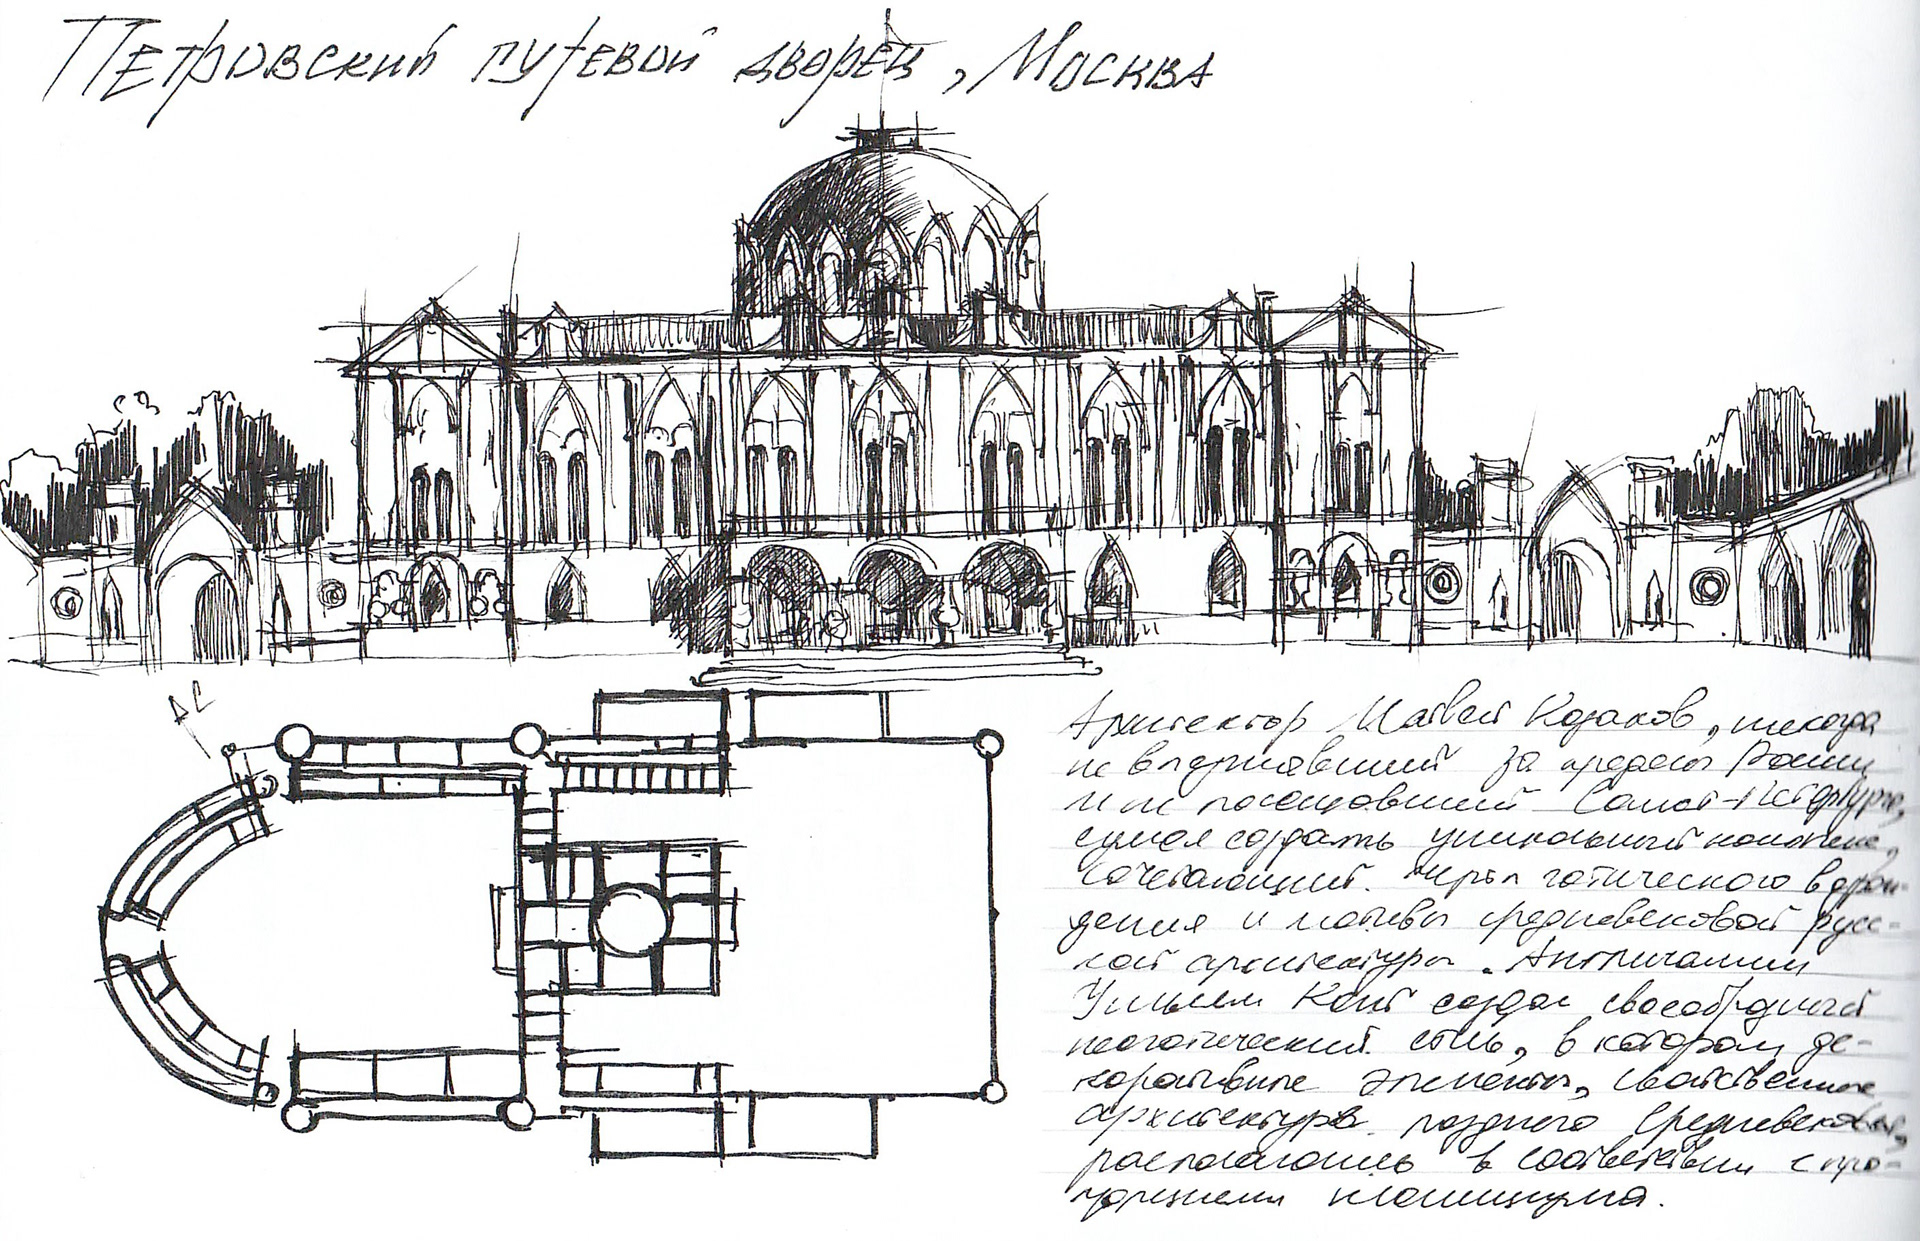 Петровский путевой дворец, Москва
АС
Архитектор Матвей Казаков, никогда
не выезжавший за пределы России
и не посещавший Санкт-Петербурга,
сумел создать уникальный комплекс,
сочетающий черты готического возрож-
дения и мотивы средневековой русс-
кой архитектуры. Англичанин
Уильям Кент создал своеобразный
неоготический стиль, в котором де-
коративные элементы, свойственные
архитектуре позднего Средневековья,
располагались в соответствии с про-
порциями классицизма.